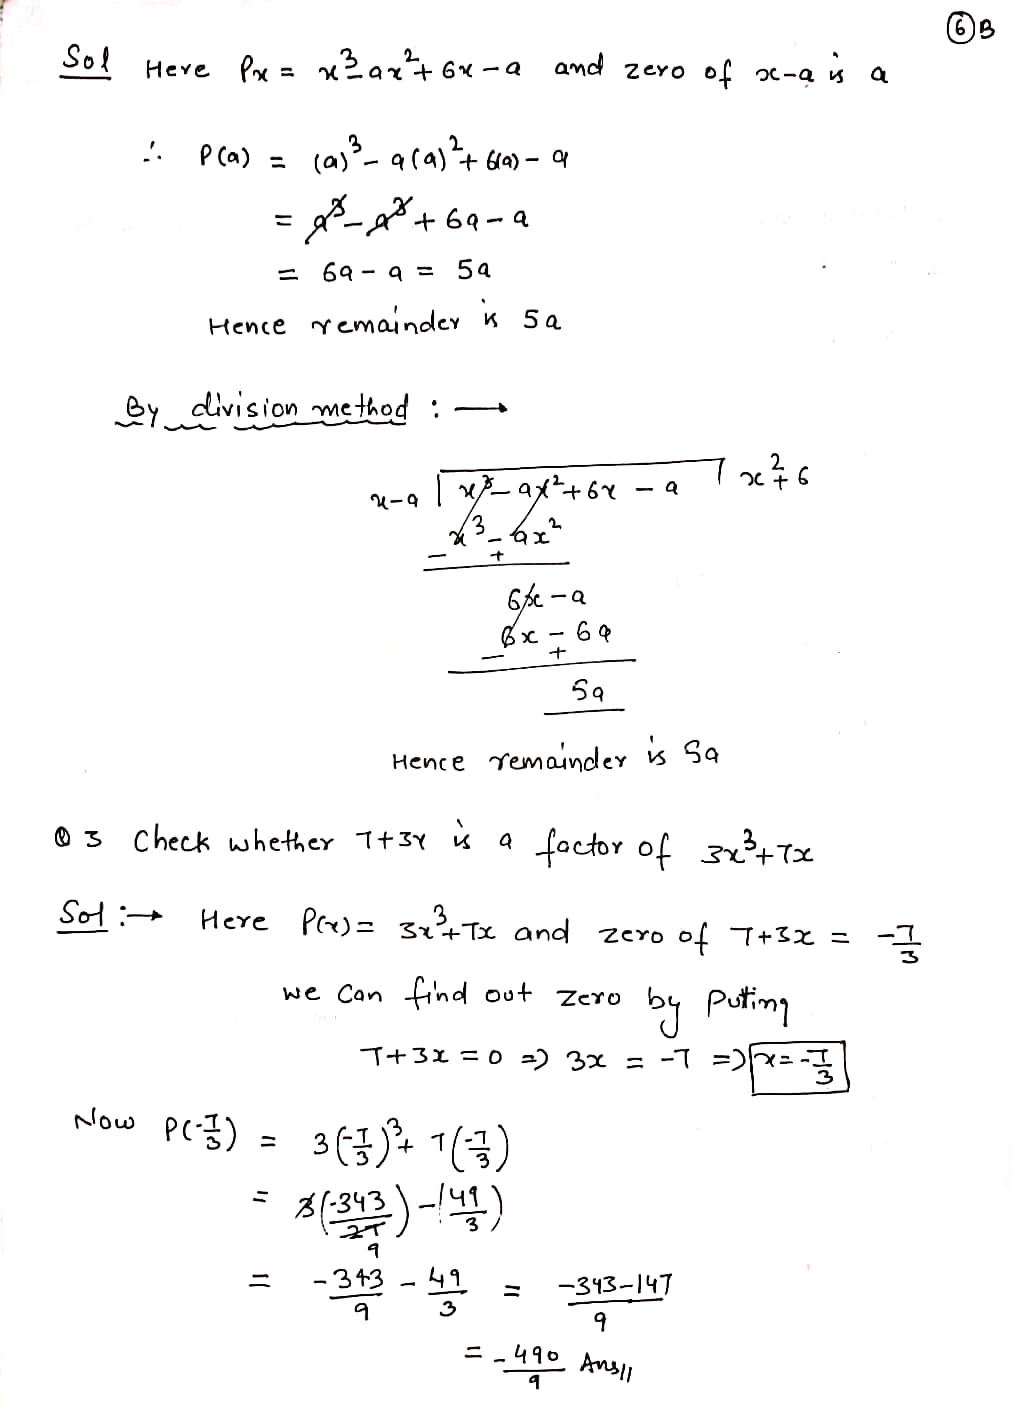 ⑥B
Sol Here Px = x³-ax²+6x-a and zero of x-a is a
∴ P(a) = (a)³-a(a)²+6(a)-a
= a³-a³+6a-a
= 6a-a = 5a
Hence remainder is 5a
By division method :→
x-a | x³-ax²+6x-a | x²+6
x³-ax²
- +
6x-a
6x-6a
- +
5a
Hence remainder is 5a
Q3 Check whether 7+3x is a factor of 3x³+7x
Sol :→ Here P(x)= 3x³+7x and zero of 7+3x = -7/3
we can find out zero by puting
7+3x=0 => 3x = -7 => x=-7/3
Now P(-7/3) = 3(-7/3)³+ 7(-7/3)
= 3(-343/27 9) -(49/3)
= -343/9 - 49/3 = -343-147/9
= -490/9 Ans//